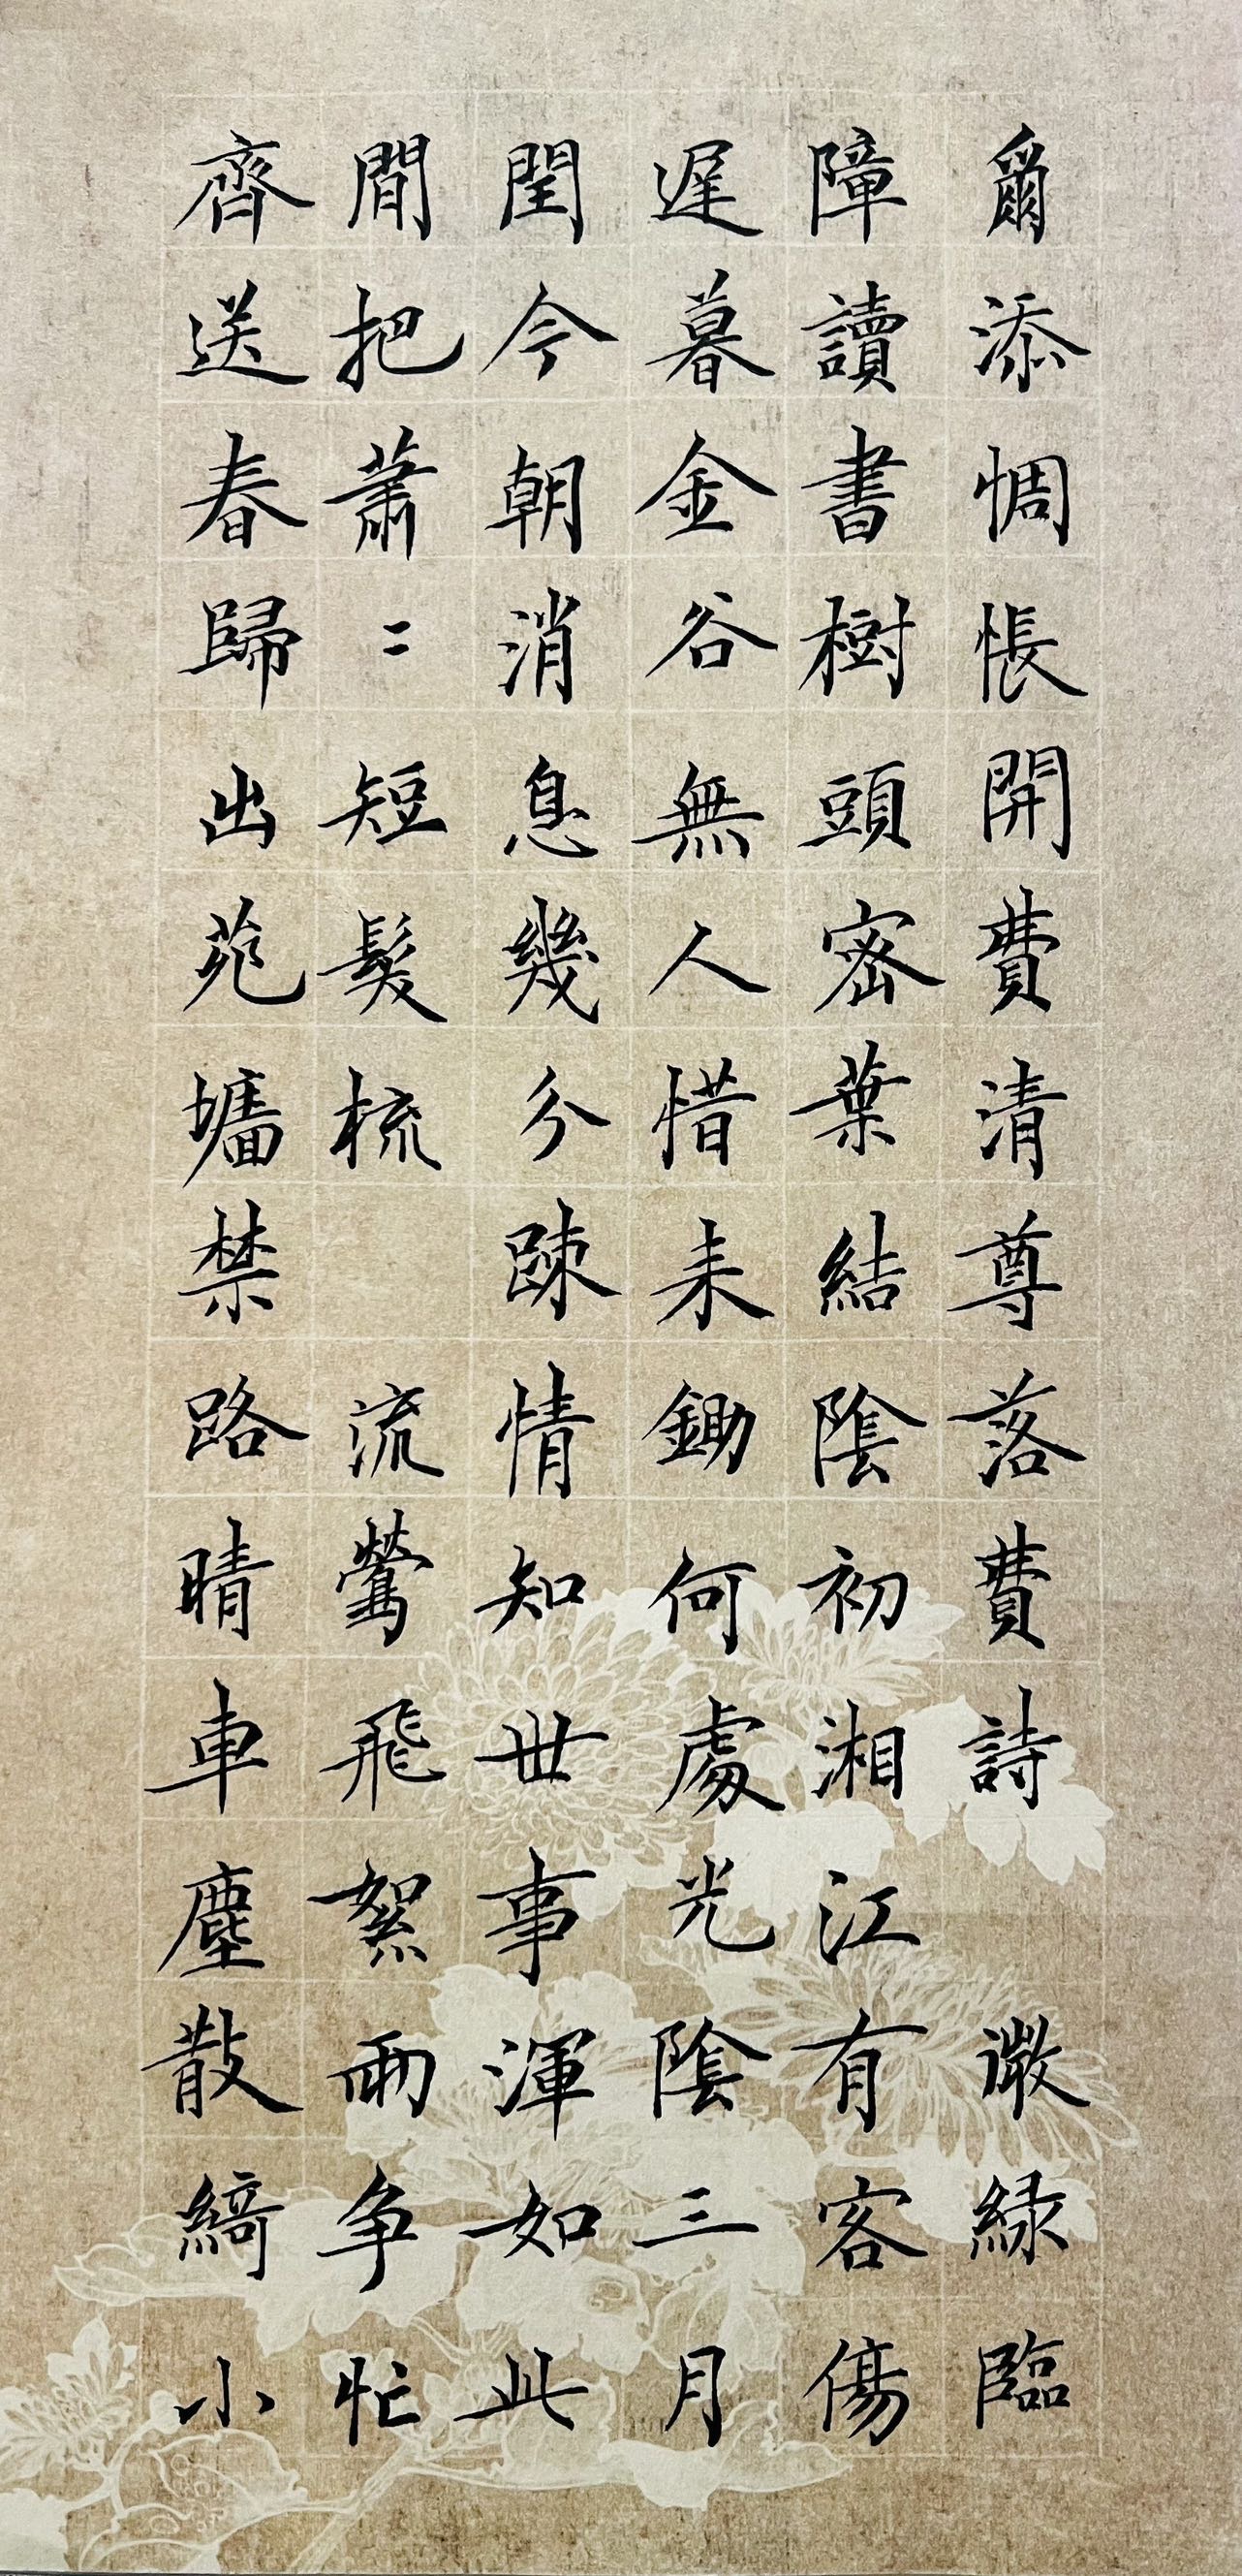 爾添惆悵開費清尊落費詩 微綠臨
障讀書樹頭密葉結陰初湘江有客傷
遲暮金谷無人惜耒鋤何處光陰三月
閏今朝消息幾分踈情知世事渾如此
間把蕭〻短髮梳 流鶯飛絮兩爭忙
齊送春歸出苑墻禁路晴車塵散綺小